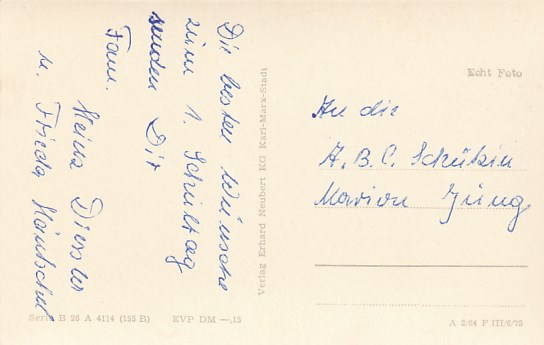 Die besten Wünsche
zum 1. Schultag
senden Dir
Fam.
Heinz Diessler
u. Frieda Häntschel
Verlag Erhard Neubert KG Karl-Marx-Stadt
Echt Foto
An die
A.B.C. Schützin
Marion Jung
Serie B 26 A 4114 (155 B) KVP DM —,15
A 2/64 F III/6/75